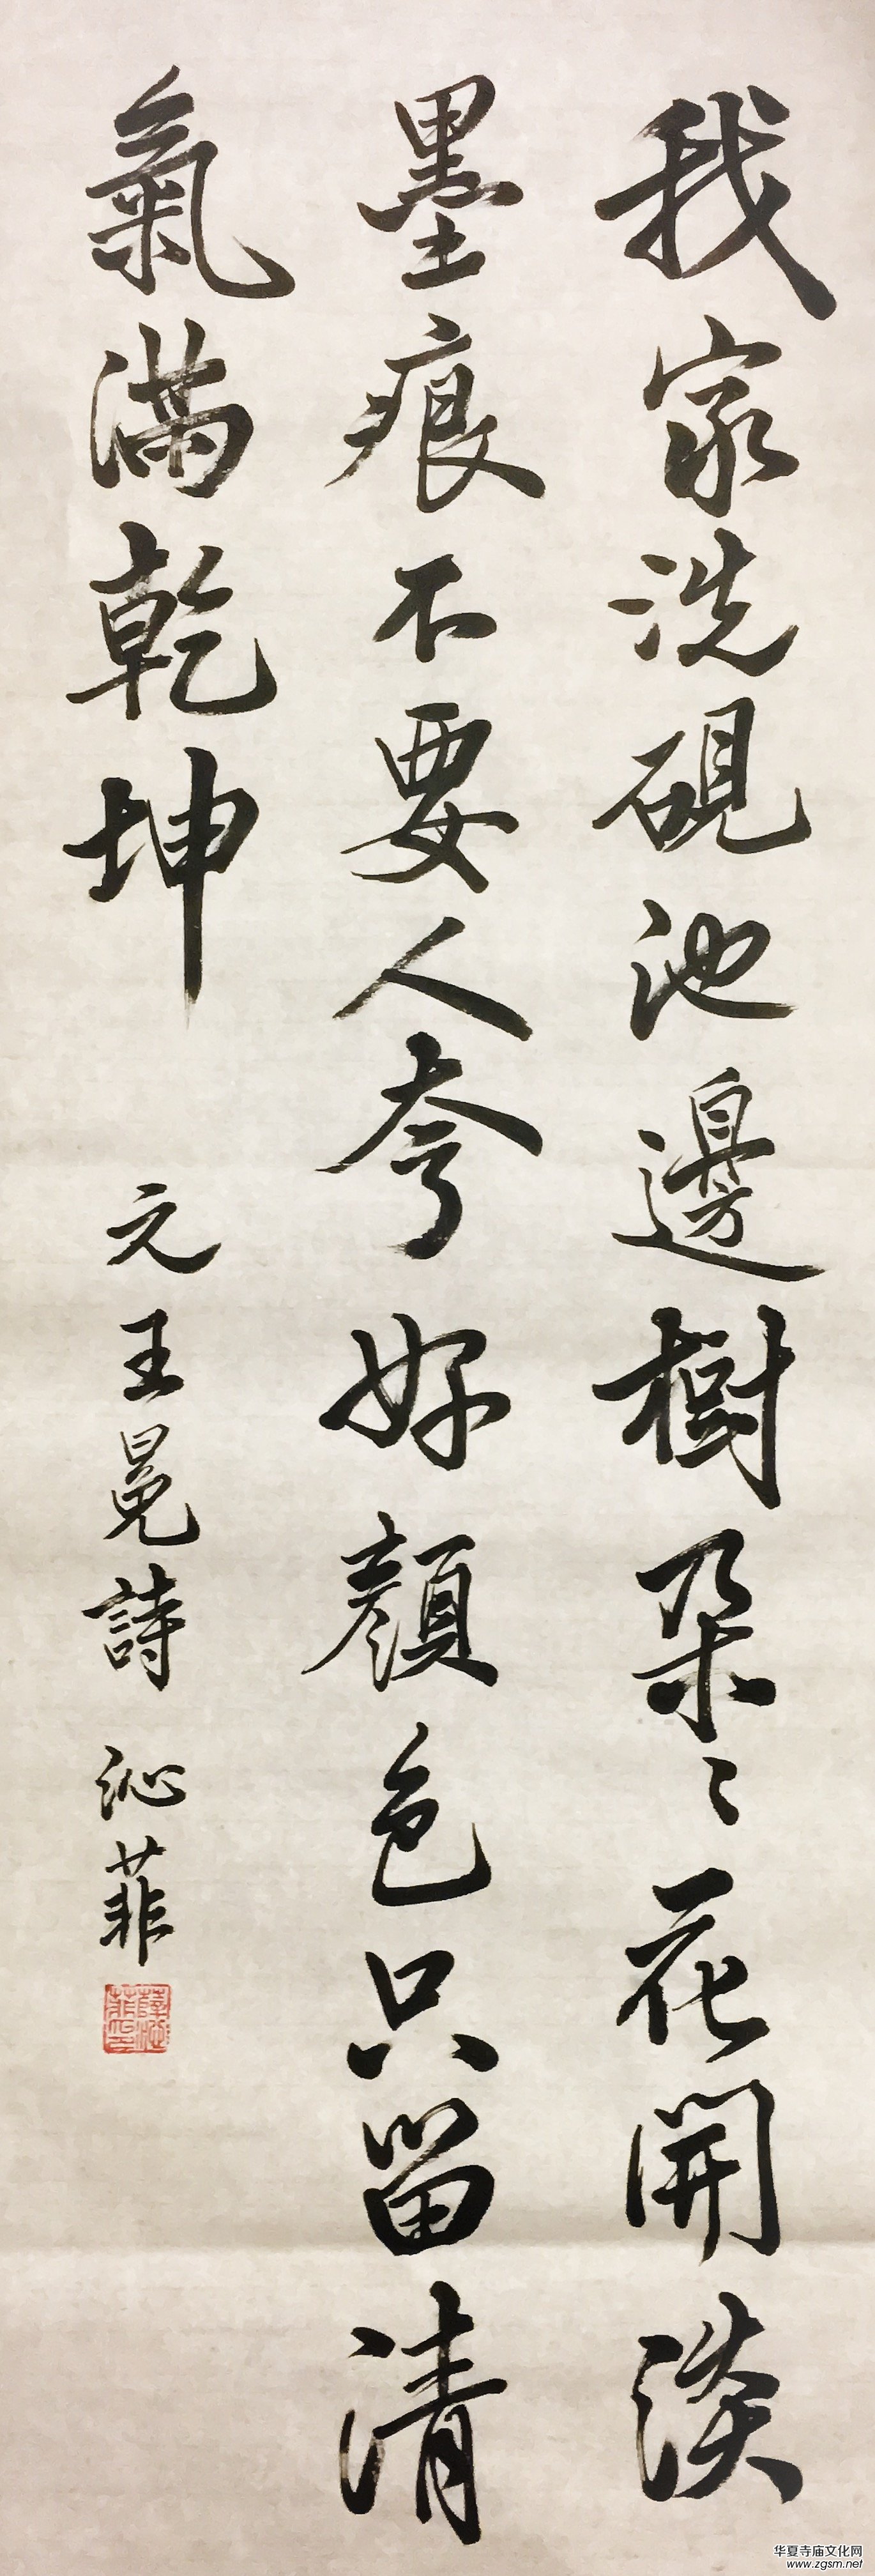 我家洗硯池邊樹朶〻花開淡
墨痕不要人夸好顏色只留清
氣滿乾坤
元王冕詩 沁菲
華夏寺庙文化网
www.zgsm.net